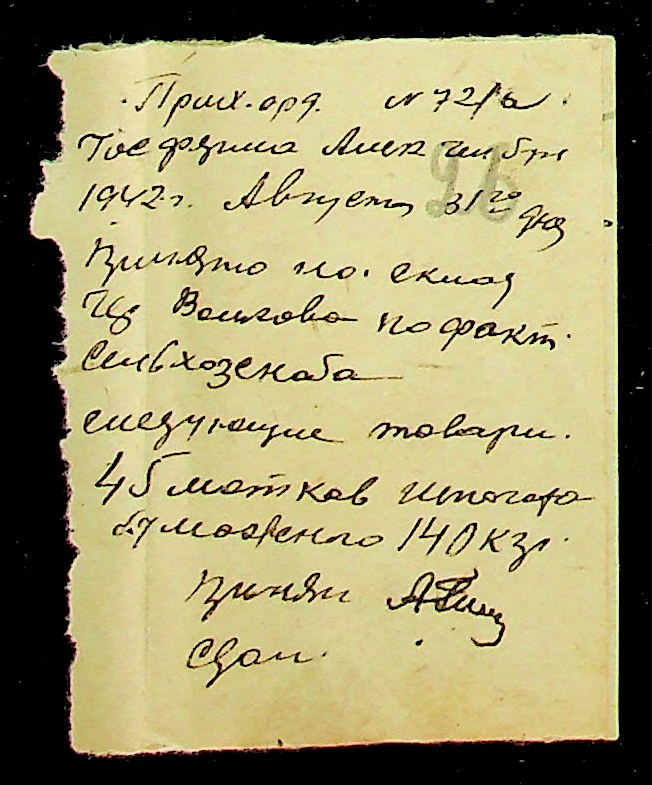 Прих. орд. N 72/б
Госферма Александри
1942 г. Август, 31го дня
Принято на склад
Из Волкова по факт.
Сельхозснаба
следующие товари.
45 мотков шпогата
бумажного 140 кгр.
Принял
Сдал.